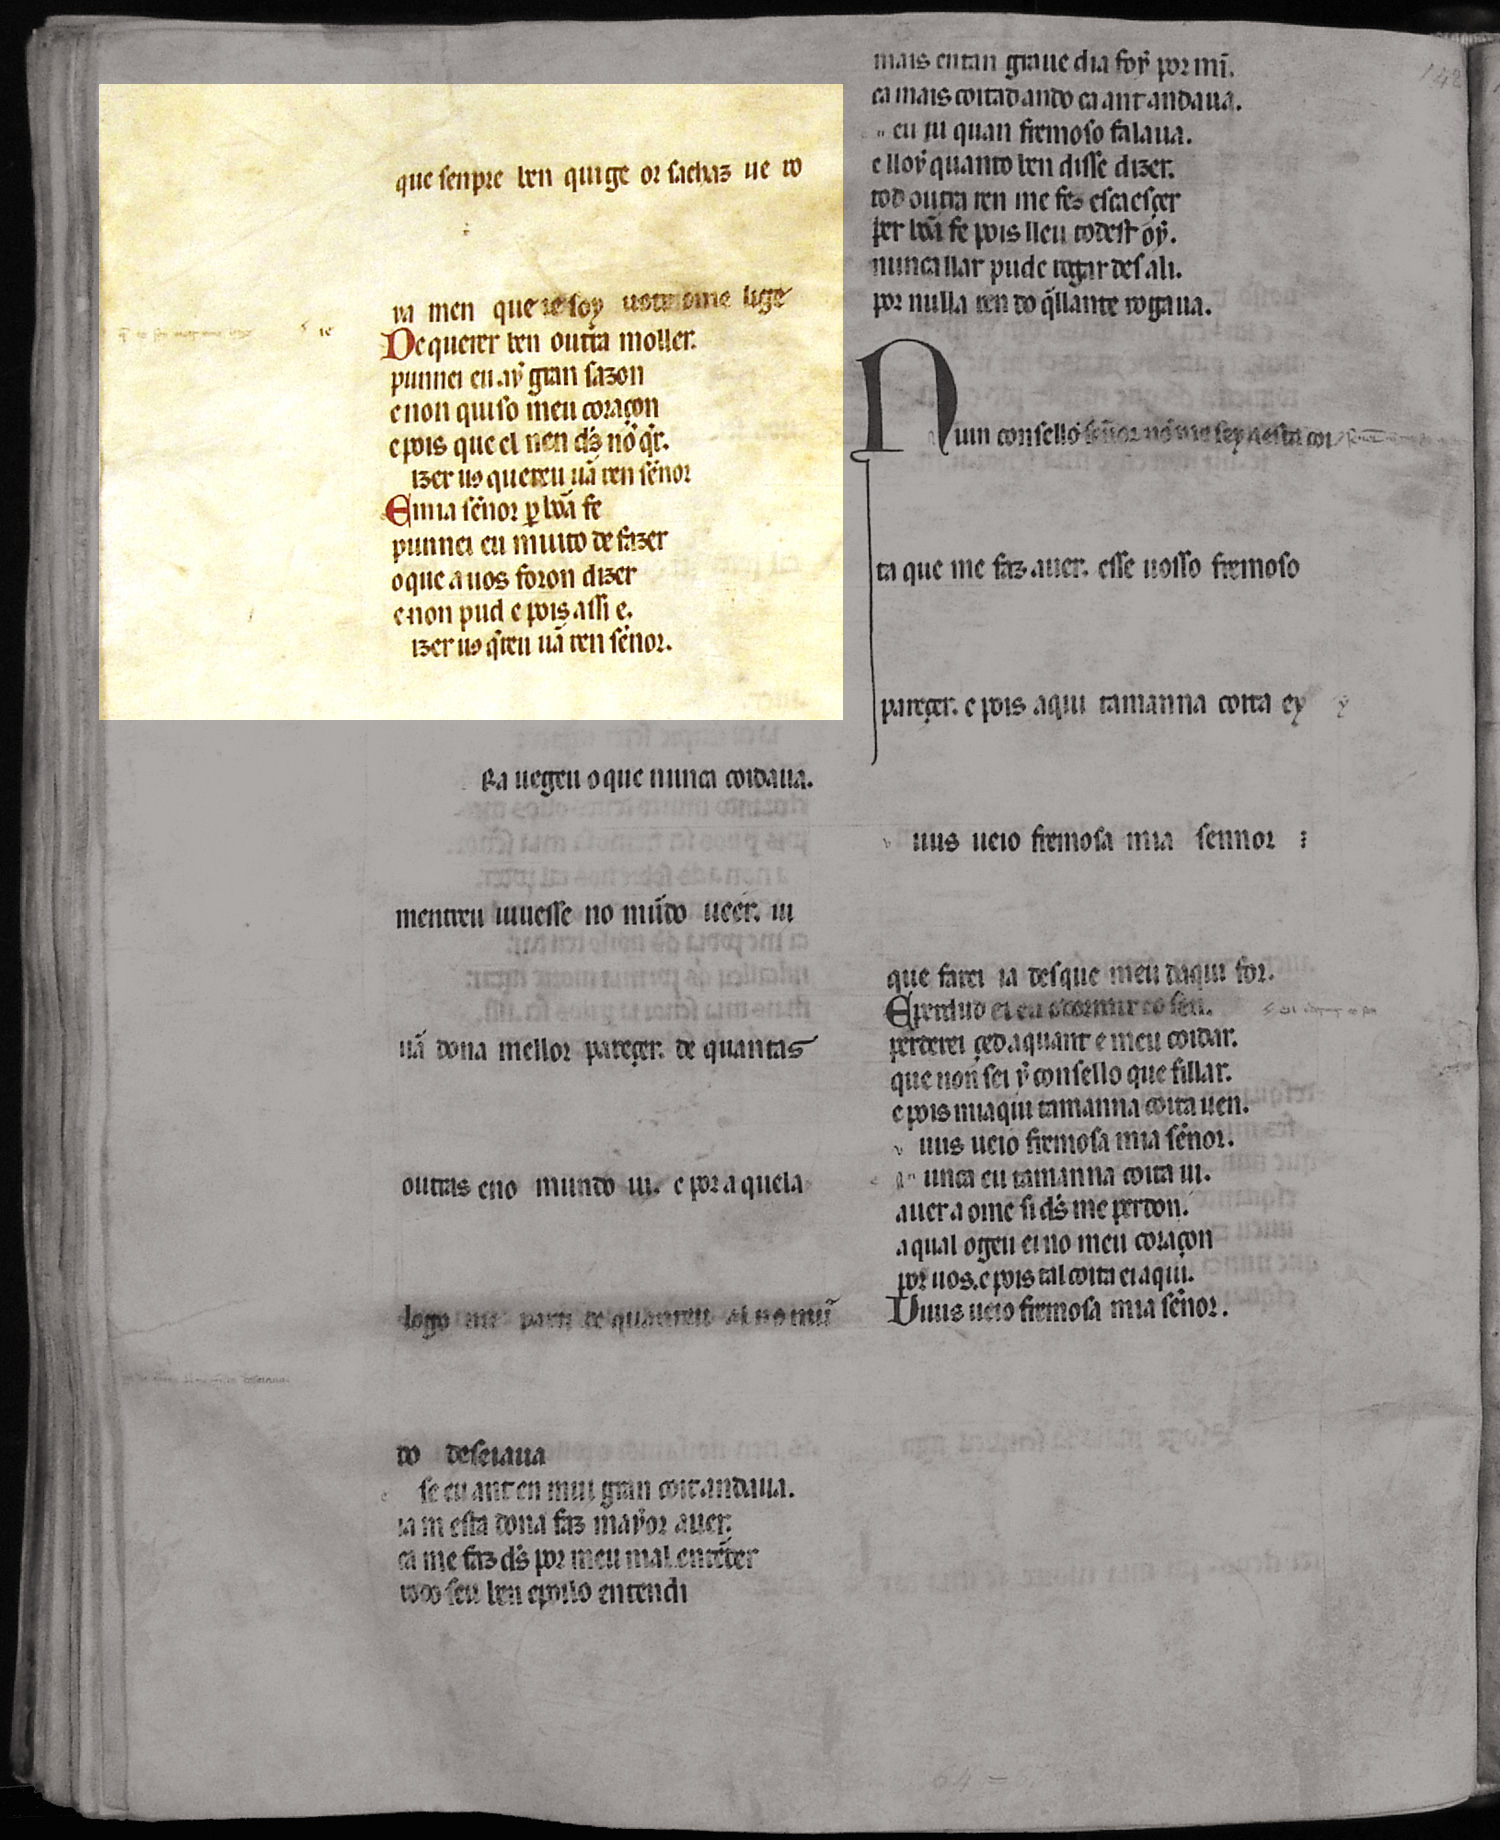 que senpre ben quige or sachaz ue ro
ya men que ie soy uotr ome lige
De querer ben outra moller.
punnei eu.aẏ gran sazon
e non quiso meu coraçon
e pois que el nen d̃s nõ q̃r.
izer uꝯ quereu ũa ren sẽnor
E mia sẽnor ꝑ bõa fe
punnei eu muito de fazer
o que a uos foron dizer
e non pud e pois assi e.
izer uꝯ q̃reu ũa ren sẽnor.
Ra uegeu o que nunca coidaua.
mentreu uiuesse no mũdo ueer. ui
ũa dona mellor pareçer. de quantas
outras eno mundo ui. e por aquela
logo mi parti de quantreu al no mũ
do deseiaua
se eu ant en mui gran coit andaua.
ia m esta dona faz maẏor auer.
ca me faz d̃s por meu mal.entẽder
todo seu ben e poilo entendi
mais en tan graue dia foẏ por mi.
ca mais coitad ando ca ant andaua.
eu ui quan fremoso falaua.
e lloẏ quanto ben disse dizer.
tod outra ren me fez escaesçer
per bõa fe pois lleu todest oẏ.
nunca llar pude rogar des ali.
por nulla ren do q̃llante rogaua.
Num consello sẽnor nõ me sey a esta coi
ta que me faz auer. esse uosso fremoso
pareçer. e pois aqui tamanna coita ey
u uus ueio fremosa mia sennor :
que farei ia des que meu daqui for.
E perdud ei eu o dormir e o sen.
perderei çed aquant e meu coidar.
que non sei ẏ consello que fillar.
e pois miaqui tamanna coita uen.
u uus ueio fremosa mia sẽnor.
unca eu tamanna coita ui.
auer a ome si d̃s me perdon.
a qual ogeu ei no meu coraçon
por uos.e pois tal coita ei aqui.
U uus ueio fremosa mia sẽnor.